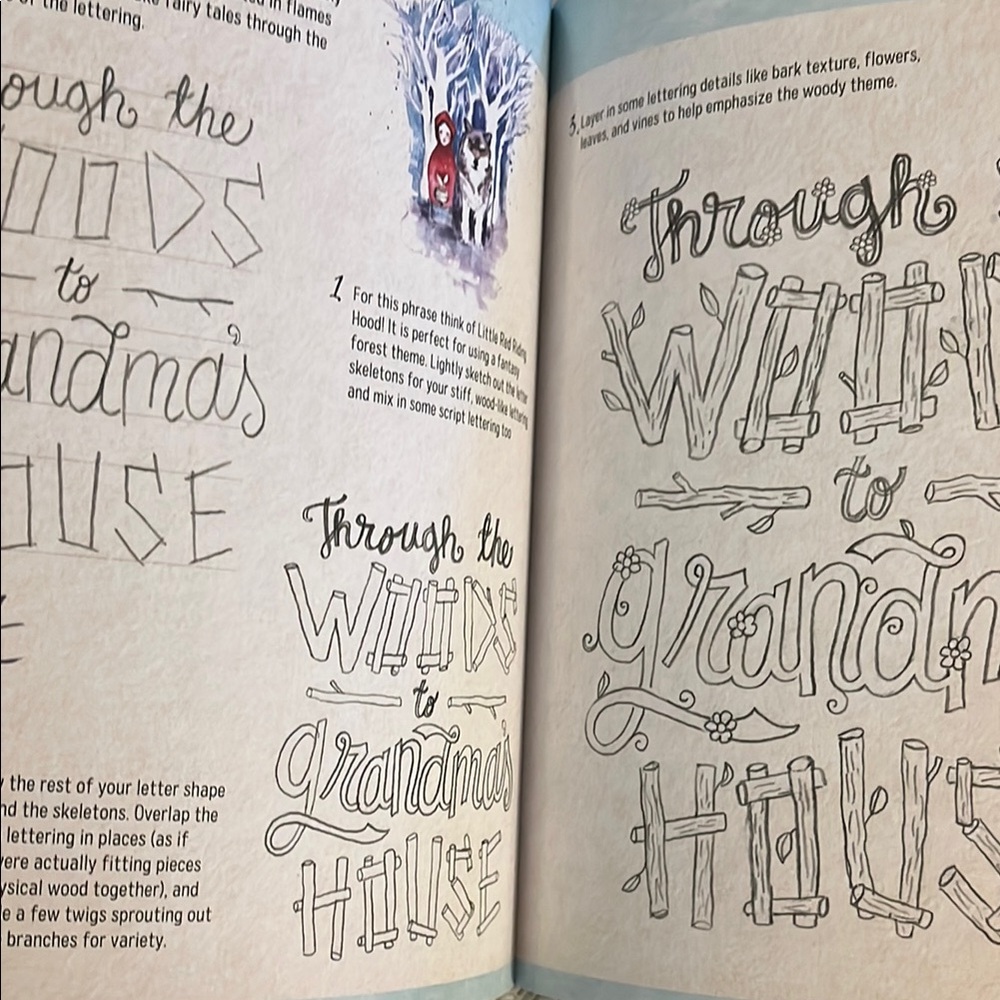 in flames
fairy tales through the
the lettering.
ough the
OODS
to
andma's
OUSE
1 For this phrase think of Little Red Riding
Hood! It is perfect for using a fantasy
forest theme. Lightly sketch out the letter
skeletons for your stiff, wood-like lettering
and mix in some script lettering too
Through the
WOODS
to
grandma's
HOUSE
the rest of your letter shape
nd the skeletons. Overlap the
lettering in places (as if
were actually fitting pieces
ysical wood together), and
e a few twigs sprouting out
branches for variety.
3. Layer in some lettering details like bark texture, flowers,
leaves, and vines to help emphasize the woody theme.
Through
WOO
to
grandm
HOUS